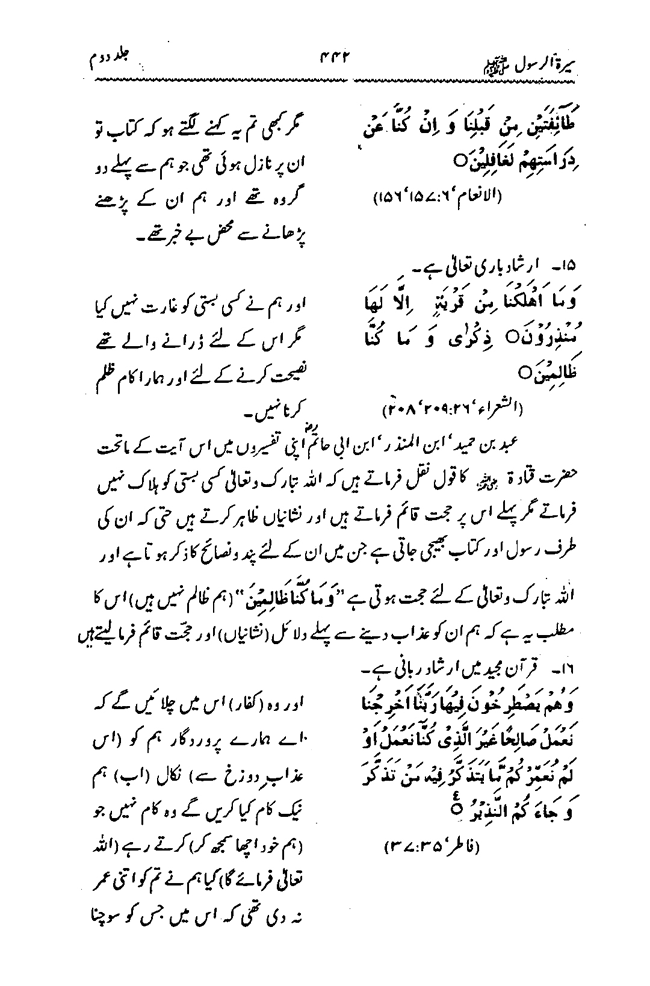 سیرۃ الرسول ﷺ ۴۴۲ جلد دوم
طَآئِفَتَیْنِ مِنْ قَبْلِنَا وَ اِنْ كُنَّا عَنْ
دِرَاسَتِهِمْ لَغَافِلِیْنَ○
(الانعام‘ ۶:۱۵۷‘۱۵۶)
مگر کبھی تم یہ کہنے لگتے ہو کہ کتاب تو
ان پر نازل ہوئی تھی جو ہم سے پہلے دو
گروہ تھے اور ہم ان کے پڑھنے
پڑھانے سے محض بے خبر تھے۔
۱۵۔ ارشاد باری تعالیٰ ہے۔
وَمَا اَهْلَكْنَا مِنْ قَرْیَةٍ اِلَّا لَهَا
مُنْذِرُوْنَ○ ذِكْرٰی وَ مَا كُنَّا
ظَالِمِیْنَ○
(الشعراء‘ ۲۶:۲۰۹‘۲۰۸)
اور ہم نے کسی بستی کو غارت نہیں کیا
مگر اس کے لئے ڈرانے والے تھے
نصیحت کرنے کے لئے اور ہمارا کام ظلم
کرنا نہیں۔
عبد بن حمید‘ ابن المنذر‘ ابن ابی حاتمؒ اپنی تفسیروں میں اس آیت کے ماتحت
حضرت قتادۃ کا قول نقل فرماتے ہیں کہ اللہ تبارک وتعالیٰ کسی بستی کو ہلاک نہیں
فرماتے مگر پہلے اس پر حجت قائم فرماتے ہیں اور نشانیاں ظاہر کرتے ہیں حتیٰ کہ ان کی
طرف رسول اور کتاب بھیجی جاتی ہے جن میں ان کے لئے پند ونصائح کا ذکر ہوتا ہے اور
اللہ تبارک وتعالیٰ کے لئے حجت ہوتی ہے ”وَمَا كُنَّا ظَالِمِیْنَ“ (ہم ظالم نہیں ہیں) اس کا
مطلب یہ ہے کہ ہم ان کو عذاب دینے سے پہلے دلائل (نشانیاں) اور حجّت قائم فرما لیتے ہیں
۱۶۔ قرآن مجید میں ارشاد ربانی ہے۔
وَهُمْ یَصْطَرِخُوْنَ فِیْهَا رَبَّنَا اَخْرِجْنَا
نَعْمَلْ صَالِحًا غَیْرَ الَّذِیْ كُنَّا نَعْمَلُ اَوَ
لَمْ نُعَمِّرْكُمْ مَّا یَتَذَكَّرُ فِیْهِ مَنْ تَذَكَّرَ
وَ جَاءَكُمُ النَّذِیْرُ○
(فاطر‘ ۳۵:۳۷)
اور وہ (کفار) اس میں چلائیں گے کہ
اے ہمارے پروردگار ہم کو (اس
عذاب دوزخ سے) نکال (اب) ہم
نیک کام کیا کریں گے وہ کام نہیں جو
(ہم خود اچھا سمجھ کر) کرتے رہے (اللہ
تعالیٰ فرمائے گا) کیا ہم نے تم کو اتنی عمر
نہ دی تھی کہ اس میں جس کو سوچنا